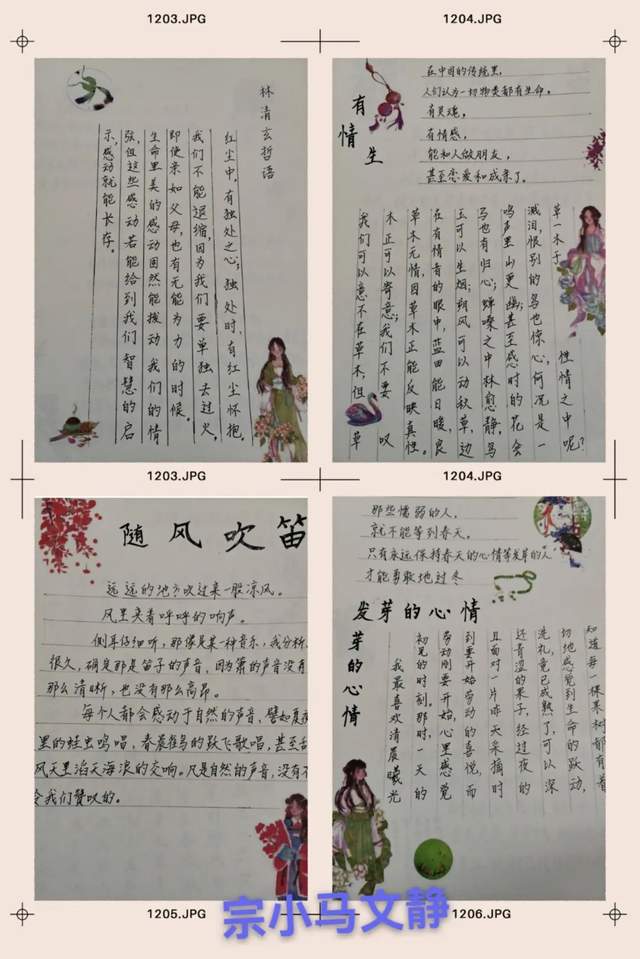 1203.JPG
1204.JPG
林清玄哲语
红尘中,有独处之心;独处时,有红尘怀抱。
我们不能退缩,因为我们要单独去过火,
即使亲如父母,也有无能为力的时候。
生命里美的感动固然能拨动我们的情
弦,但这些感动若能给到我们智慧的启
示,感动就能长存。
有情生
在中国的传统里,
人们认为一切物类都有生命。
有灵魂,
有情感,
能和人做朋友,
甚至恋爱和成亲了。
我们可以意不在草木,但草
木正可以寄意;我们不要叹
草木无情,因草木正能反映真性。
在有情者的眼中,蓝田能日暖,良
玉可以生烟;朔风可以动秋草,边
马也有归心;蝉噪之中林愈静,鸟
鸣声里山更幽;甚至感时的花会
溅泪,恨别的鸟也惊心,何况是一
草一木于性情之中呢?
1203.JPG
1204.JPG
随风吹笛
远远的地方吹过来一股凉风。
风里夹着呼呼的响声。
侧耳仔细听,那像是某一种音乐,我分析
很久,确定那是笛子的声音,因为箫的声音没有
那么清晰,也没有那么高昂。
每个人都会感动于自然的声音,譬如夏夜
里的蛙虫鸣唱,春晨雀鸟的跃飞歌唱,甚至刮
风天里滔天海浪的交响。凡是自然的声音,没有不
令我们赞叹的。
那些懦弱的人,
就不能等到春天,
只有永远保持春天的心情等发芽的人
才能勇敢地过冬
发芽的心情
芽的心情
我最喜欢清晨曦光
初见的时刻。那时,一天的
劳动刚要开始,心里感觉
到要开始劳动的喜悦,而
且面对一片昨天采摘时
还青涩的果子,经过夜的
洗礼,竟已成熟了,可以深
切地感觉到生命的跃动,
知道每一棵果树都有着
宗小马文静
1205.JPG
1206.JPG